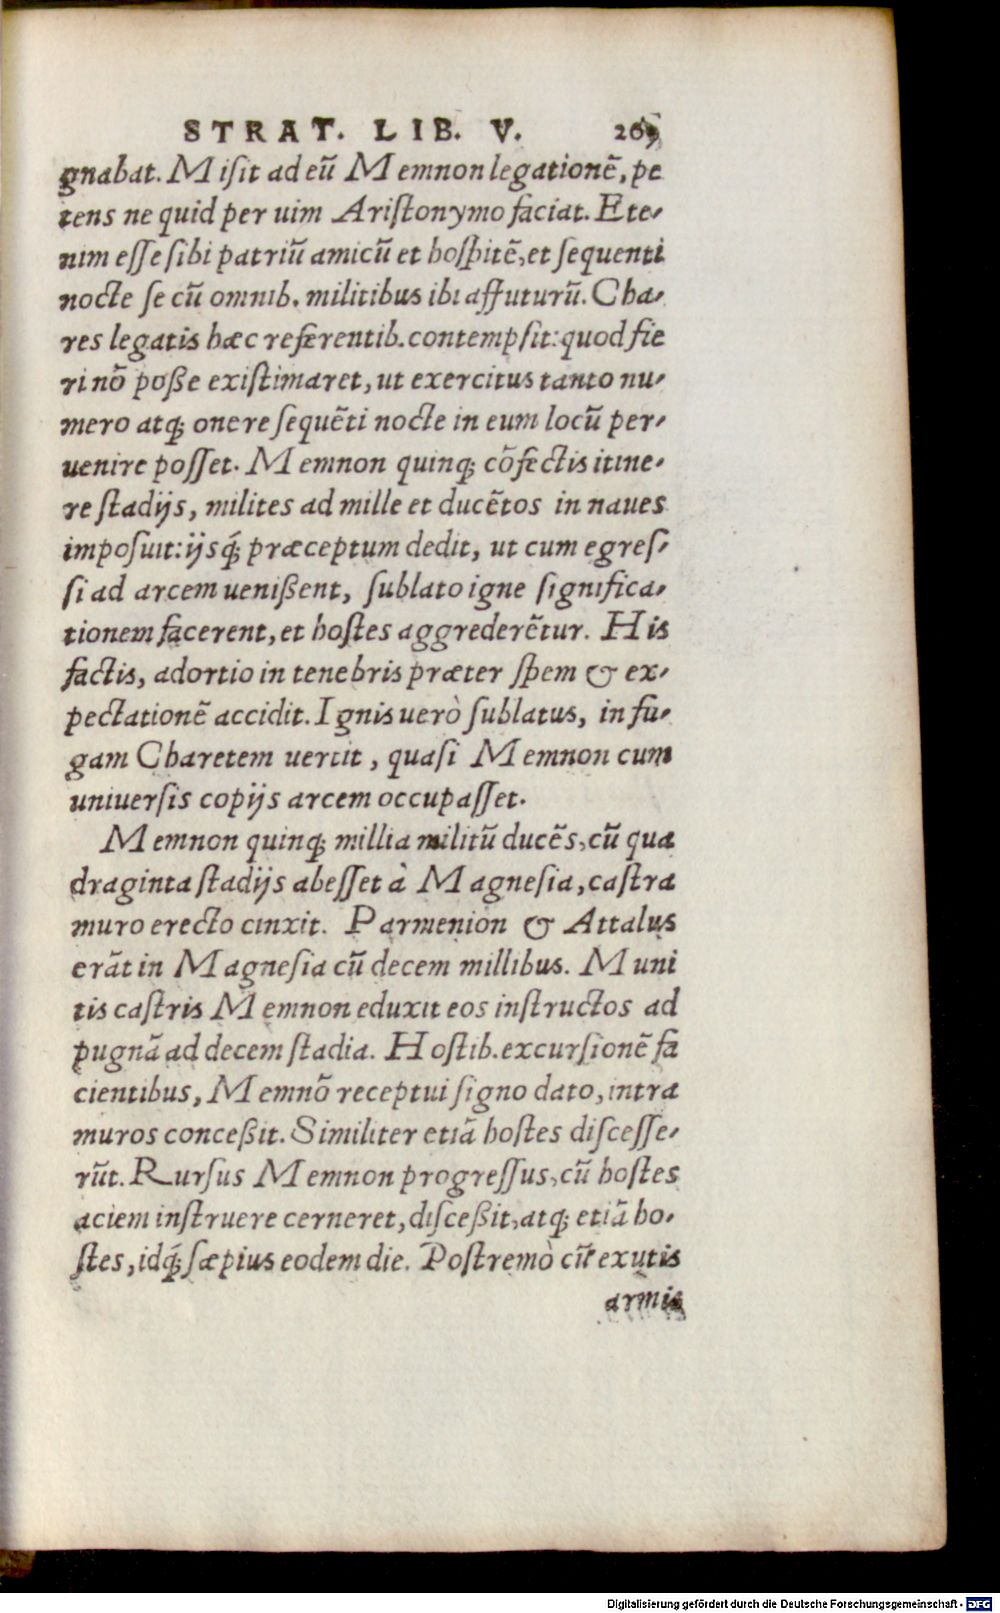 STRAT. LIB. V. 269
gnabat. Misit ad eũ Memnon legationẽ, pe
tens ne quid per uim Aristonymo faciat. Ete-
nim esse sibi patriũ amicũ et hospitẽ, et sequenti
nocte se cũ omnib. militibus ibi affuturũ. Cha-
res legatis hæc referentib. contempsit: quod fie
ri nõ poße existimaret, ut exercitus tanto nu-
mero atq; onere sequẽti nocte in eum locũ per-
uenire posset. Memnon quinq; cõfectis itine-
re stadijs, milites ad mille et ducẽtos in naues
imposuit: ijsq́; præceptum dedit, ut cum egres-
si ad arcem uenißent, sublato igne significa-
tionem facerent, et hostes aggrederẽtur. His
factis, adortio in tenebris præter spem & ex-
pectationẽ accidit. Ignis uerò sublatus, in fu-
gam Charetem uertit, quasi Memnon cum
uniuersis copijs arcem occupasset.
Memnon quinq; millia militũ ducẽs, cũ qua
draginta stadijs abesset à Magnesia, castra
muro erecto cinxit. Parmenion & Attalus
erãt in Magnesia cũ decem millibus. Muni
tis castris Memnon eduxit eos instructos ad
pugnã ad decem stadia. Hostib. excursionẽ fa
cientibus, Memnõ receptui signo dato, intra
muros conceßit. Similiter etiã hostes discesse-
rũt. Rursus Memnon progressus, cũ hostes
aciem instruere cerneret, disceßit, atq; etiã ho-
stes, idq́; sæpius eodem die. Postremò cũ exutis
armis
Digitalisierung gefördert durch die Deutsche Forschungsgemeinschaft - DFG